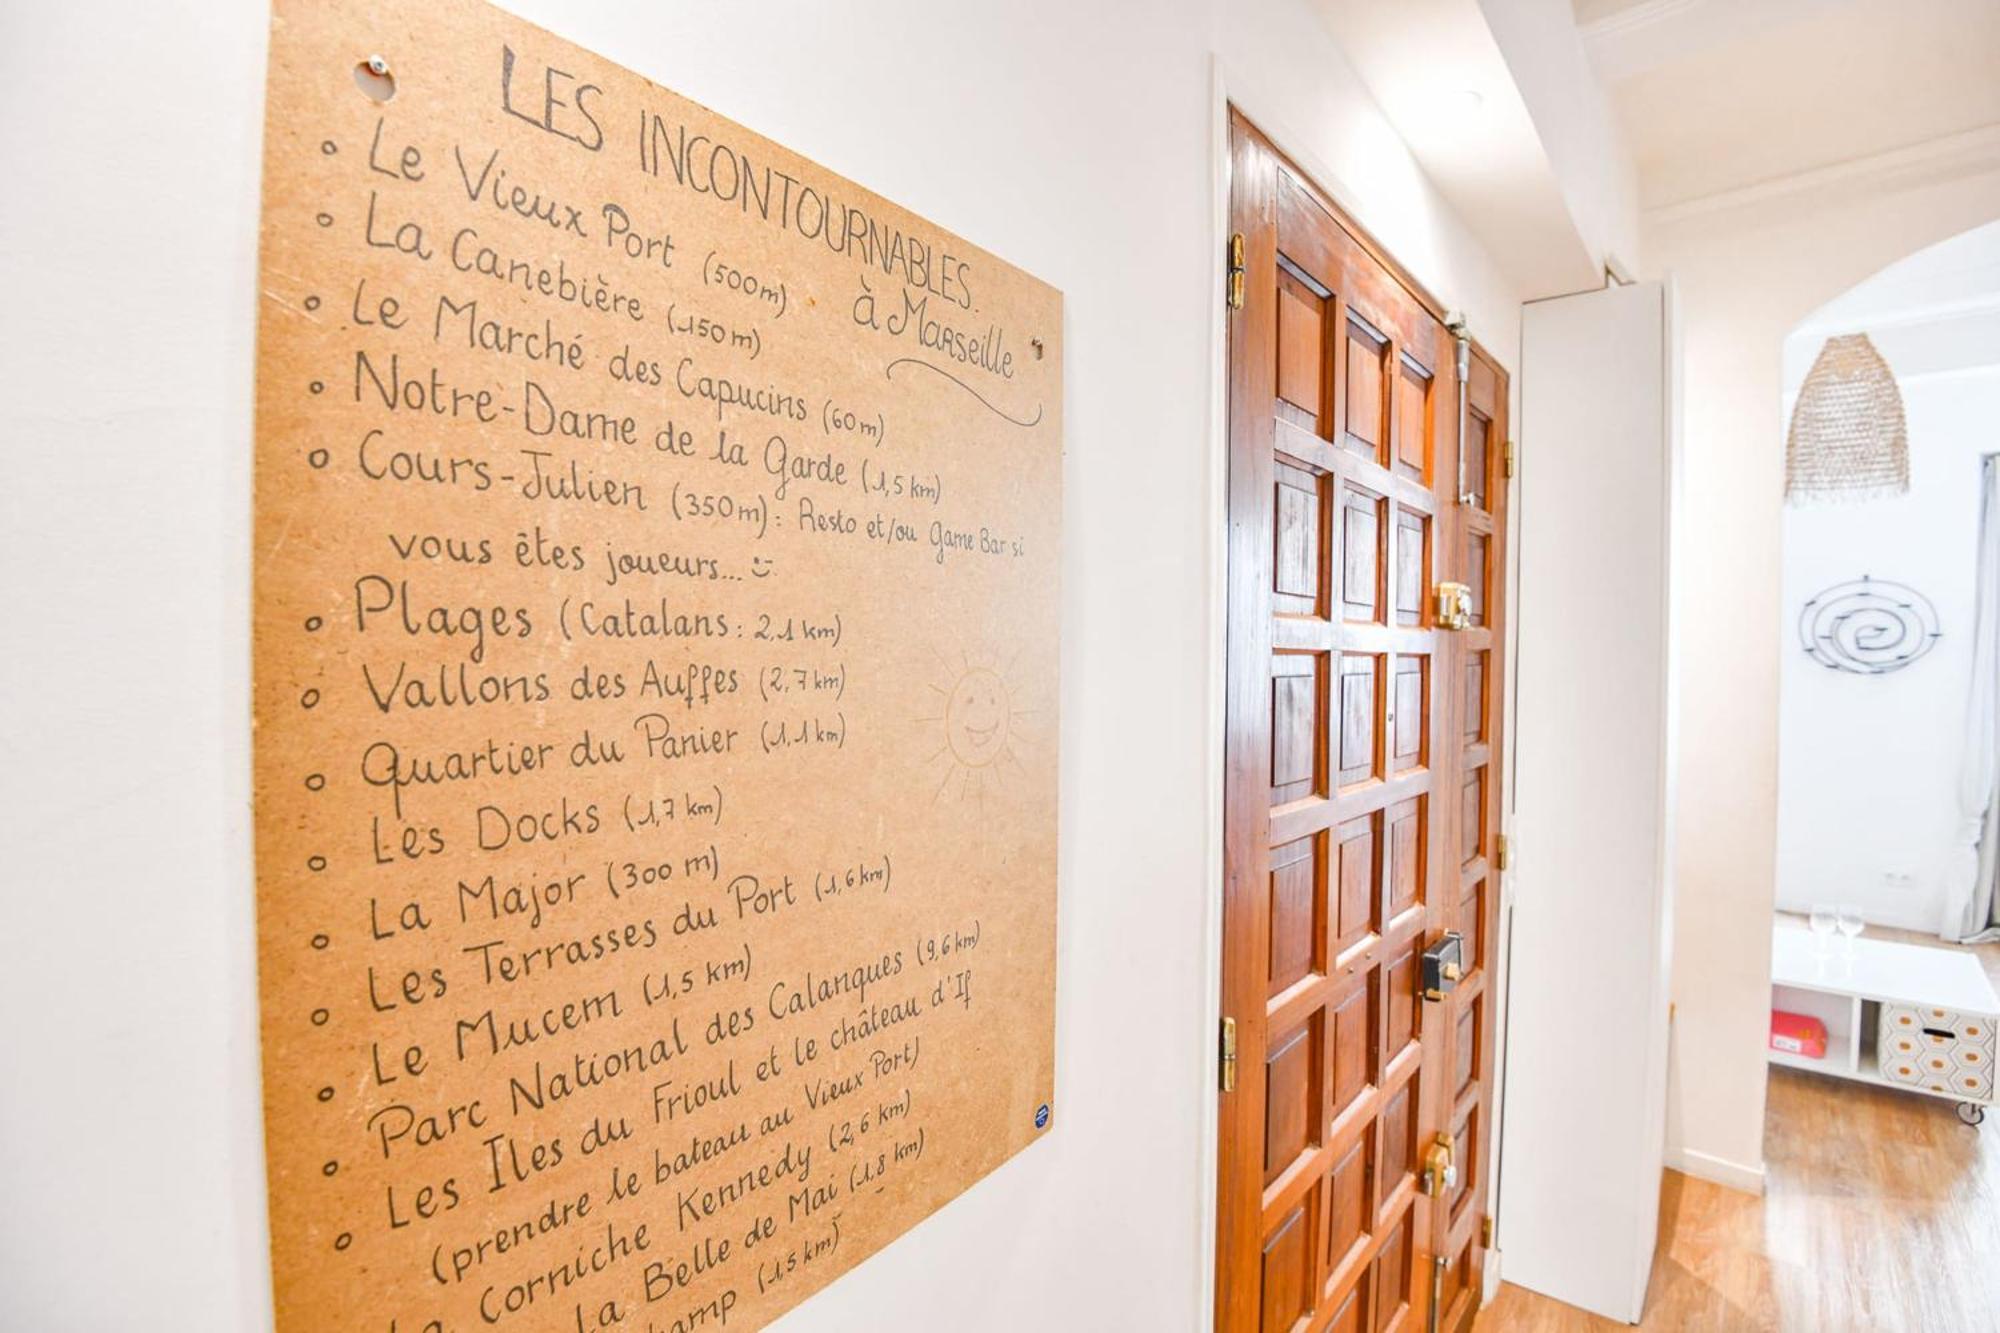 LES INCONTOURNABLES
à Marseille
° Le Vieux Port (500m)
° La Canebière (150m)
° Le Marché des Capucins (60m)
° Notre-Dame de la Garde (1,5 km)
° Cours-Julien (350m): Resto et/ou Game Bar si
vous êtes joueurs... :-)
° Plages (Catalans: 2,1 km)
° Vallons des Auffes (2,7 km)
° Quartier du Panier (1,1 km)
° Les Docks (1,7 km)
° La Major (300 m)
° Les Terrasses du Port (1,6 km)
° Le Mucem (1,5 km)
° Parc National des Calanques (9,6 km)
° Les Iles du Frioul et le château d'If
(prendre le bateau au Vieux Port)
Corniche Kennedy (2,6 km)
La Belle de Mai (1,8 km)
(1,5 km)